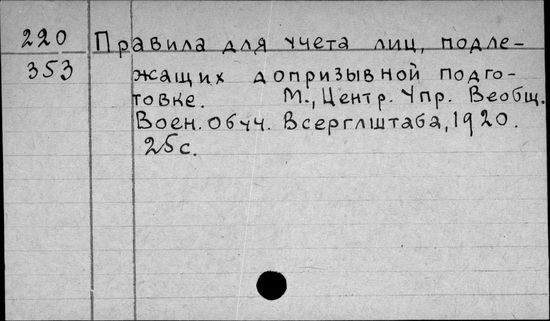 220 Правила для учета лиц, подле-
353 жащих допризывной подго-
товке. М., Центр. Упр. Веобщ.
Воен. обуч. Всерглштаба, 1920.
25с.